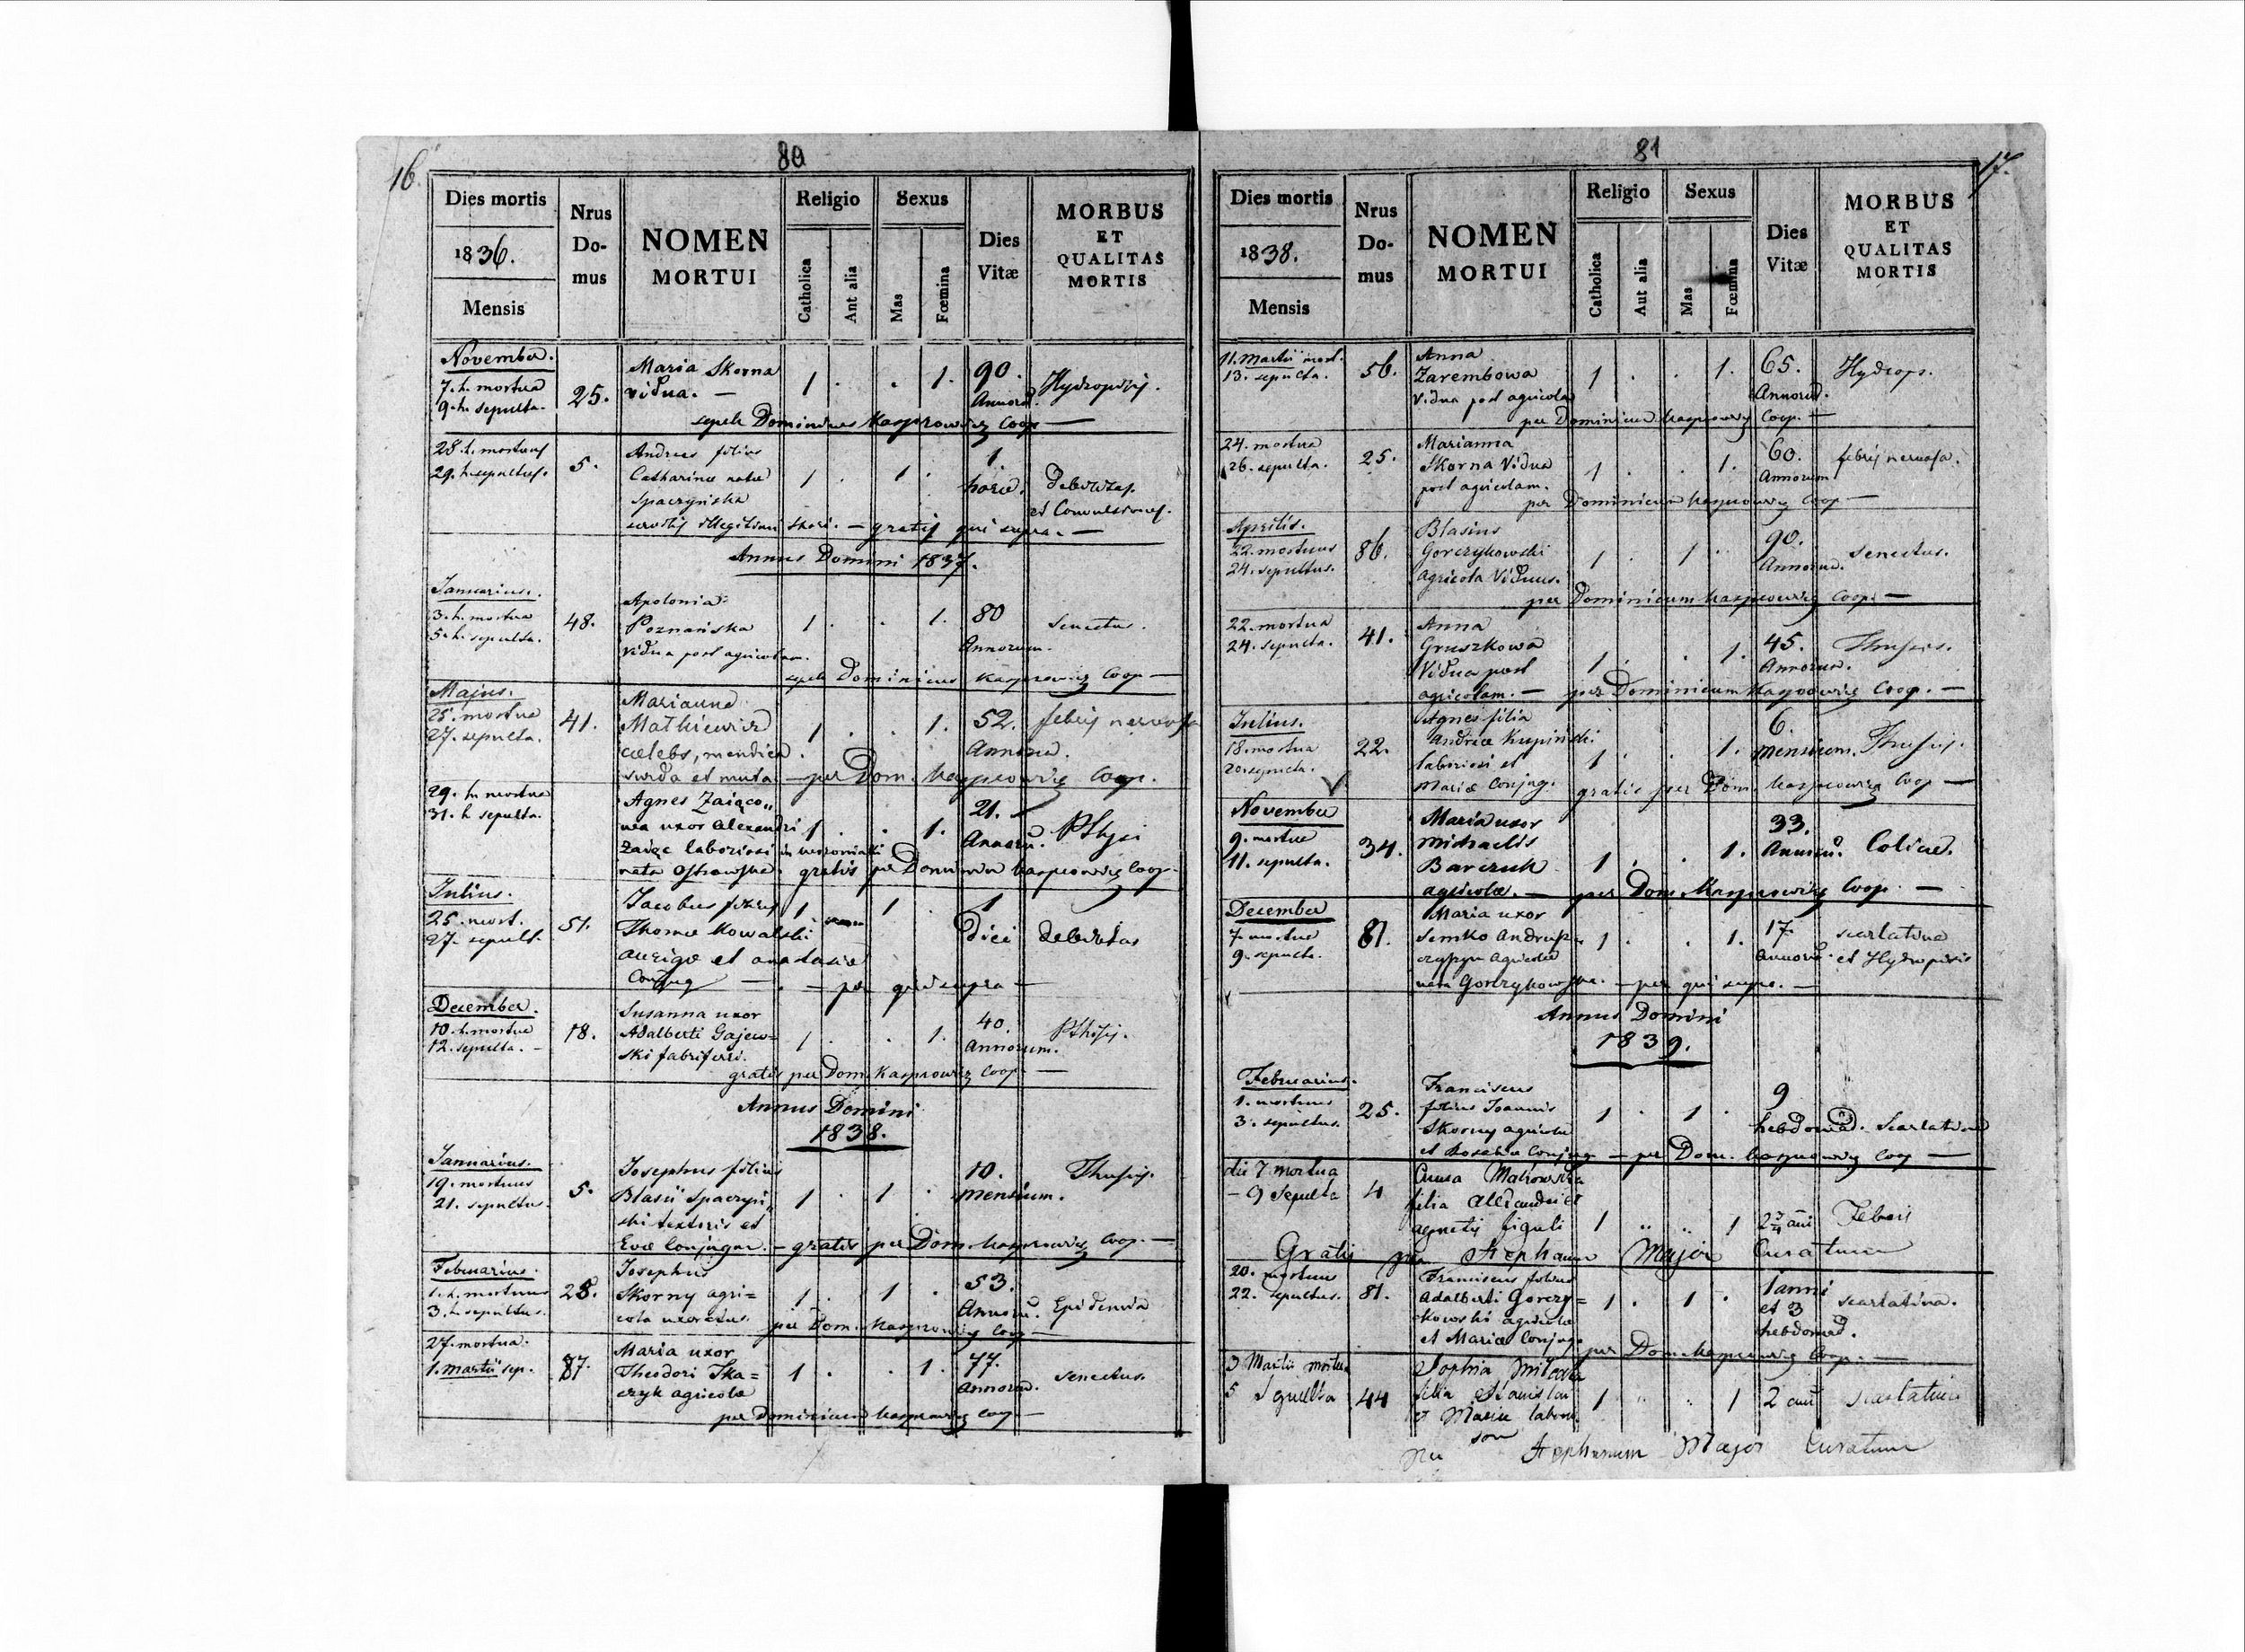 16.
80
Dies mortis
1836.
Mensis
Nrus
Do-
mus
NOMEN
MORTUI
Religio
Catholica
Aut alia
Sexus
Mas
Fœmina
Dies
Vitæ
MORBUS
ET
QUALITAS
MORTIS
November.
7. h. mortua
9. h. sepulta.
25.
Maria Skorna
vidua. —
1 . . 1.
90.
Annorū.
Hydropisis.
sepeli Dominicus Kasprowicz Coop —
28. h. mortuus
29. h. sepultus.
5.
Andreas filius
Catharinæ natæ
Spaczyńska
1 . 1 .
1
horæ.
debilitas
et Convulsiones.
illegitimi thori. — gratis qui supra. —
Annus Domini 1837.
Januarius.
3. h. mortua
5. h. sepulta.
48.
Apolonia
Poznańska
vidua post agricolam.
1 . . 1.
80
Annorum.
senectus.
sepeli Dominicus Kasprowicz Coop —
Majus.
25. mortua
27. sepulta.
41.
Marianna
Mathiewicz
cælebs, mendica.
surda et muta.
1 . . 1.
52.
Annorū.
febris nervosa
— per Dom. Kasprowicz Coop.
29. h. mortua
31. h. sepulta.
Agnes Zaiąco„
wa uxor Alexandri
Zaiąc laboriosi
nata Ostrowska.
1 . . 1.
21.
Annorū.
Pthysis
gratis per Dominicum Kasprowicz Coop.
Julius.
25. mort.
27. sepult.
51.
Jacobus filius
Thomæ Kowalski
aurigæ et Anastasiæ
Conjug —
1 1 .
1
diei
debilitas
— per qui supra —
December.
10. h. mortua
12. sepulta. —
18.
Susanna uxor
Adalberti Gajew=
ski fabriferri.
1 . . 1.
40.
Annorum.
Pthisis.
gratis per Dom. Kasprowicz Coop. —
Annus Domini
1838.
Januarius.
19. mortuus
21. sepultus.
5.
Josephus filius
Blasii Spaczyń„
ski textoris et
Evæ Conjugum.
1 . 1 .
10.
mensium.
Thussis.
— gratis per Dom. Kasprowicz Coop. —
Februarius.
1. h. mortuus
3. h. sepultus.
28.
Josephus
Skorny agri=
cola uxoratus.
1 . 1 .
53.
Annorū.
Epidemia
per Dom. Kasprowicz Coop —
27. mortua.
1. Martii sep.
87.
Maria uxor
Theodori Tka=
czyk agricolæ
1 . . 1.
77.
Annorū.
senectus.
per Dominicum Kasprowicz Coop —
17.
81
Dies mortis
1838.
Mensis
Nrus
Do-
mus
NOMEN
MORTUI
Religio
Catholica
Aut alia
Sexus
Mas
Fœmina
Dies
Vitæ
MORBUS
ET
QUALITAS
MORTIS
11. Martii mort.
13. sepulta.
56.
Anna
Zarembowa
vidua post agricolam
1 . . 1.
65.
Annorū.
Hydrops.
per Dominicum Kasprowicz Coop. —
24. mortua
26. sepulta.
25.
Marianna
Skorna Vidua
post agricolam.
1 . . 1.
60.
Annorum
febris nervosa.
per Dominicum Kasprowicz Coop —
Aprilis.
22. mortuus
24. sepultus.
86.
Blasius
Gorczykowski
agricola Viduus.
1 . 1 .
90.
Annorū.
senectus.
per Dominicum Kasprowicz Coop. —
22. mortua
24. sepulta.
41.
Anna
Gruszkowa
Vidua post
agricolam. —
1 . . 1.
45.
Annorū.
Thussis.
per Dominicum Kasprowicz Coop. —
Julius.
18. mortua
20. sepulta.
22.
Agnes filia
Andreæ Krupiński
laboriosi et
Mariæ Conjug.
1 . . 1.
6.
mensium.
Thussis.
gratis per Dom. Kasprowicz Coop —
November
9. mortua
11. sepulta.
34.
Maria uxor
Michaelis
Barczuk
agricolæ. —
1 . . 1.
33.
Annorū.
Colicæ.
per Dom. Kasprowicz Coop. —
December
7. mortua
9. sepulta.
81.
Maria uxor
Semko Andrusz=
czyszyn agricolæ
nata Gorczykowska.
1 . . 1.
17.
annorū.
scarlatina
et Hydropisis
— per qui supra. —
Annus Domini
1839.
Februarius.
1. mortuus
3. sepultus.
25.
Franciscus
filius Joannis
Skorny agricolæ
et Rosaliæ Conjug.
1 . 1 .
9
hebdomad.
Scarlatina
— per Dom. Kasprowicz Coop —
die 7 mortua
— 9 Sepulta
4
filia Alexandri et
Agnetis figuli
1 „ „ 1
2 3/4 ani
Febris
Gratis per Stephanum Major Curatum
20. mortuus
22. sepultus.
81.
Franciscus filius
Adalberti Gorczy=
kowski agricolæ
et Mariæ Conjug.
1 . 1 .
1 anni
et 3
hebdomad.
scarlatina.
per Dom. Kasprowicz Coop. —
3 Martii mortua
5 Sepulta
44
Sophia
filia Stanislai
et Mariæ labori
som
1 „ „ 1
2 ani
Scarlatina
per Stephanum Major Curatum